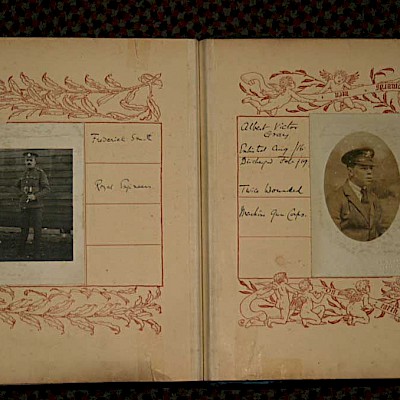 Frederick Smith
Royal Engineers
Albert Victor
Gray
Enlisted Aug /16
Discharged Feb /19
Twice Wounded
Machine Gun Corps.